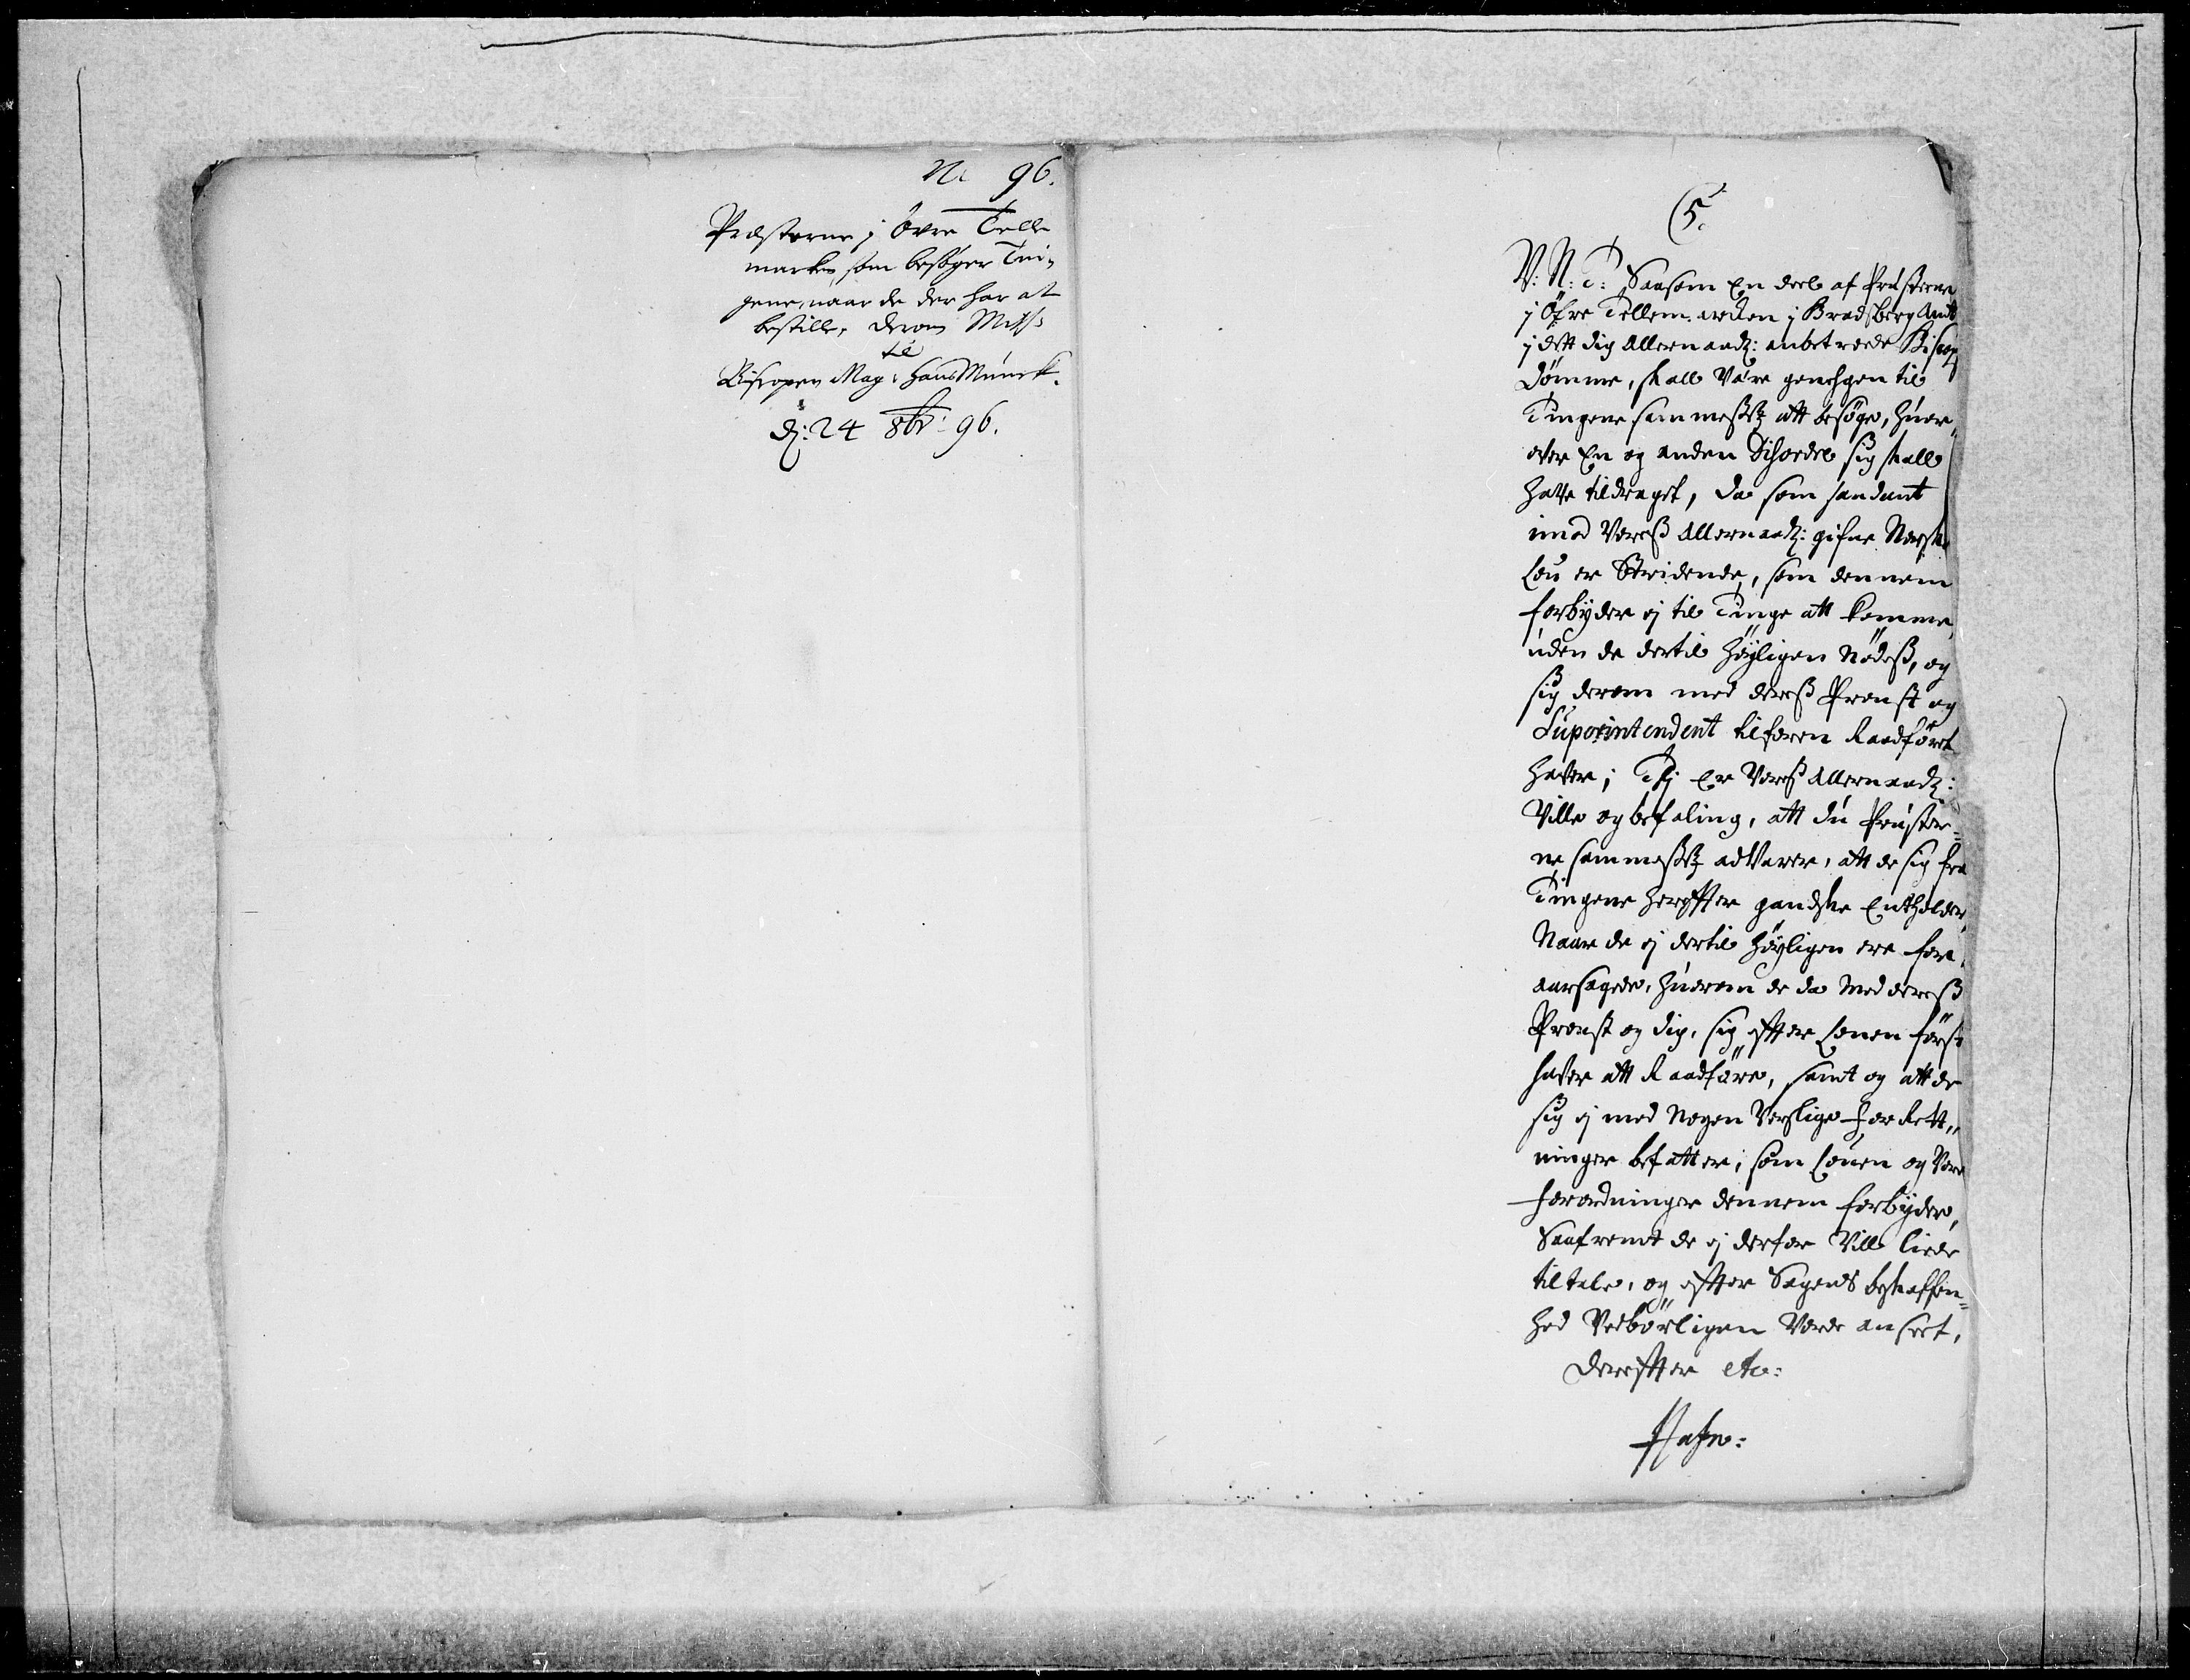 No 96.
Præsterne i Øvre Telle
marken som besøger Tin-
gene, naar de der har at
bestille, derom Miss:
til
Biscopen Mag: Hans Munck.
d: 24 8br: 96.
C5.
V: N: T: Saasom En deel af Præsterne
j Öfre Tellemarcken j Bradsberg Amt
j dett dig Allernaadg: anbetroede Biscop
Dömme, skall Være geneigen til
Tingene sammestedtz att besöge, huor-
over En og anden Disordre sig skall
have tildraget, da som saadant
imod Voreß Allernaadg: gifne Norske
Lou er Stridende, som dennem
forbyder ej til Tinge att komme,
uden de dertil höyligen Nödeß, og
sig derom med dereß Provst og
Superintendent tilforn Raadfört
haver; Thj Er Voreß Allernaadg:
Ville og befaling, att du Præster-
ne sammestedtz advarer, att de sig fra
Tingene herefter gandske Entholder,
Naar de ej dertil höyligen ere for-
aarsagede, huorom de da med dereß
Provst og dig, sig efter Louen först
haver att Raadföre, samt og att de
sig ej med Nogen Verslige forrett-
ninger befatter, som Louen og Vore
forordninger dennem forbyder,
Saafremt de ej derfor Ville liide
tiltale, og efter Sagens beskaffen-
hed Vedbörligen Vorde anseet,
Derefter etc:
Hafn: